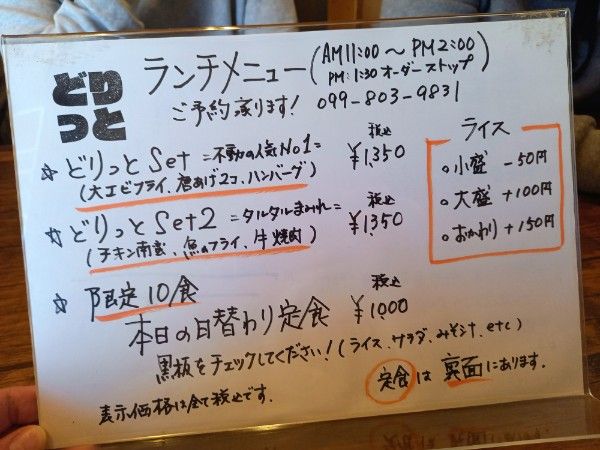 どりっと
ランチメニュー(AM11:00～PM2:00
PM:1:30オーダーストップ)
ご予約承ります! 099-803-9831
☆ どりっとSet =不動の人気No1= 税込 ¥1,350
(大エビフライ、唐あげ2コ、ハンバーグ)
☆ どりっとSet2 =タルタルまみれ= 税込 ¥1,350
(チキン南蛮、魚のフライ、牛焼肉)
☆ 限定10食
本日の日替わり定食 税込 ¥1,000
黒板をチェックしてください!(ライス、サラダ、みそ汁、etc)
表示価格は全て税込です。
定食は裏面にあります.
ライス
○小盛 -50円
○大盛 +100円
○おかわり +150円